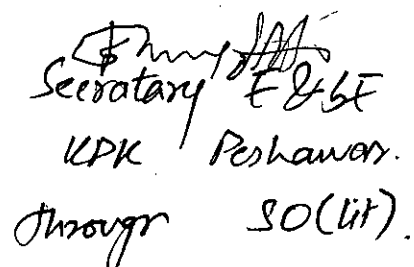 Secratary E&SE
KPK Peshawar.
through SO(lit).